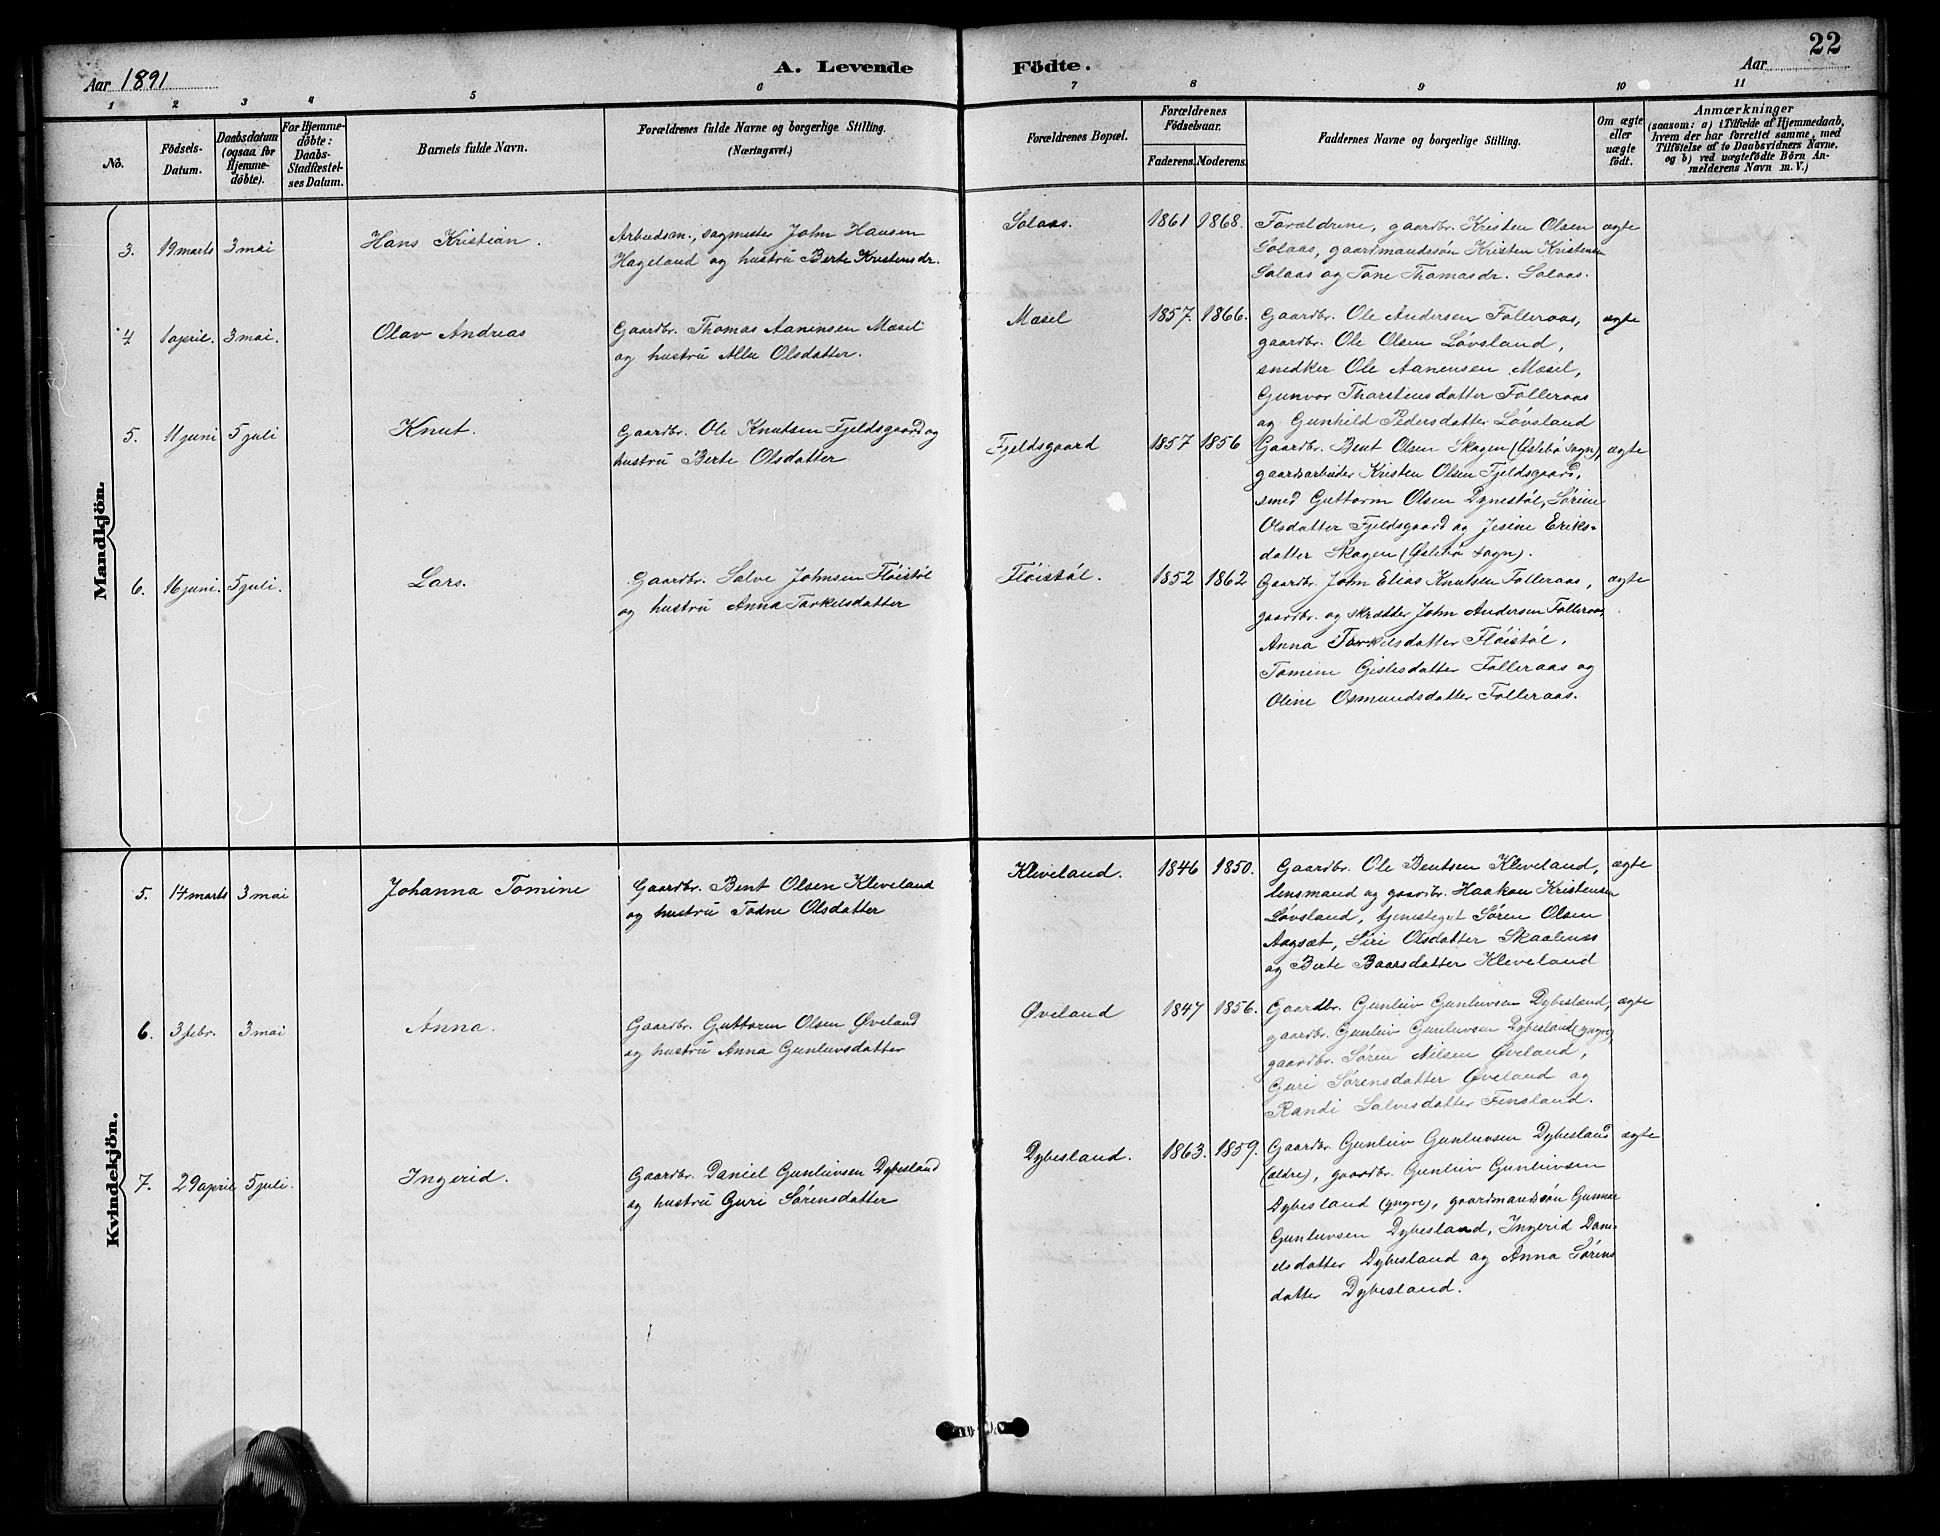 22
Aar 1891 A. Levende Födte. Aar
1 2 3 4 5 6 7 8 9 10 11
No.
Födsels-
Datum.
Daabsdatum
(ogsaa for
Hjemme-
döbte).
For Hjemme-
döbte:
Daabs-
Stadfæstel-
ses Datum.
Barnets fulde Navn.
Forældrenes fulde Navne og borgerlige Stilling.
(Næringsvei.)
Forældrenes Bopæl.
Forældrenes
Födselsaar.
Faderens. Moderens.
Faddernes Navne og borgerlige Stilling.
Om ægte
eller
uægte
født.
Anmærkninger
(saasom: a) i Tilfælde af Hjemmedaab,
hvem der har forrettet samme, med
Tilföielse af to Daabsvidners Navne.
og b) ved uægtefödte Börn An-
melderens Navn m. V.)
Mandkjön.
3. 19 marts 3 mai Hans Kristian.
Arbeidsm., sagmester John Hansen
Hageland og hustru Berte Kristensdr.
Solaas. 1861 1868.
Forældrene, gaardbr. Kristen Olsen
Solaas, gaardmandssøn Kristen Kristensen
Solaas og Tone Thomasdr. Solaas.
ægte
4 1 april. 3 mai. Olav Andreas
Gaardbr. Thomas Aanensen Mæsel
og hustru Alle Olsdatter.
Mæsel 1857. 1866.
Gaardbr. Ole Andersen Folleraas,
gaardbr. Ole Olsen Løvsland,
snedker Ole Aanensen Mæsel,
Gunvor Tharstensdatter Folleraas
og Gunhild Pedersdatter Løvsland
ægte
5. 11 juni 5 juli Knut.
Gaardbr. Ole Knutsen Fjeldsgaard og
hustru Berte Olsdatter
Fjeldsgaard 1857 1856
Gaardbr. Bent Olsen Skagen (Øslebø sogn),
gaardsarbeider Kristen Olsen Fjeldsgaard,
smed Guttorm Olsen Dynestøl, Sørine
Olsdatter Fjeldsgaard og Jesine Eriks-
datter Skagen (Øslebø sogn).
ægte
6. 16 juni. 5 juli. Lars.
Gaardbr. Salve Johnsen Fløistøl
og hustru Anna Torkelsdatter
Fløistøl. 1852 1862
Gaardbr. John Elias Knutsen Folleraas,
gaardbr. og skrædder John Andersen Folleraas,
Anna Torkelsdatter Fløistøl,
Tomine Gislesdatter Folleraas og
Oline Osmundsdatter Folleraas.
ægte
Kvindekjön.
5. 14 marts 3 mai Johanna Tomine
Gaardbr. Bent Olsen Kleveland
og hustru Todne Olsdatter
Kleveland. 1846 1850.
Gaardbr. Ole Bentsen Kleveland,
lensmand og gaardbr. Haakon Kristensen
Løvsland, tjenestegut Søren Olsen
Aagsæt, Siri Olsdatter Skaalenes
og Berte Baarsdatter Kleveland
ægte
6. 3 febr. 3 mai Anna.
Gaardbr. Guttorm Olsen Øveland
og hustru Anna Gunleivsdatter
Øveland 1847 1856.
Gaardbr. Gunleiv Gunleivsen Dybesland,
gaardbr. Gunleiv Gunleivsen Dybesland (yngre),
gaardbr. Søren Nilsen Øveland,
Guri Sørensdatter Øveland og
Randi Salvesdatter Finsland.
ægte
7. 29 april 5 juli. Ingerid.
Gaardbr. Daniel Gunleivsen Dybesland
og hustru Guri Sørensdatter
Dybesland. 1863. 1859.
Gaardbr. Gunleiv Gunleivsen Dybesland
(ældre), gaardbr. Gunleiv Gunleivsen
Dybesland (yngre), gaardmandssøn Gunnar
Gunleivsen Dybesland, Ingerid Dani-
elsdatter Dybesland og Anna Sørens
datter Dybesland.
ægte